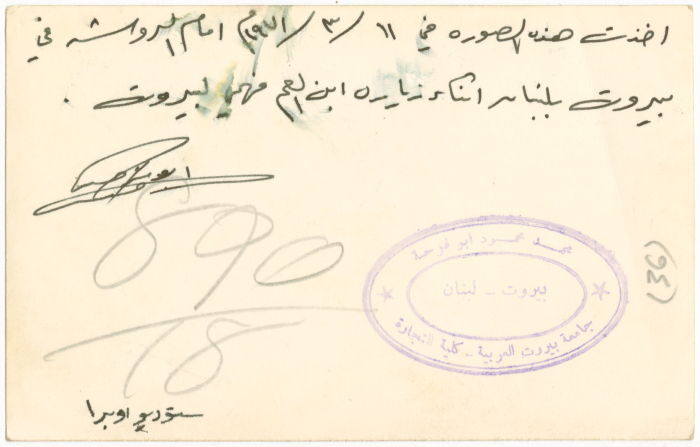 اخذت هذه الصوره في ١١/٣/١٩٦١م امام الروشه في
بيروت بلبنان اثناء زياره ابن العم فهمي لبيروت .
890
18
(36)
محمد محمود ابو فرحة
بيروت - لبنان
جامعة بيروت العربية - كلية التجارة
ستوديو اوبرا